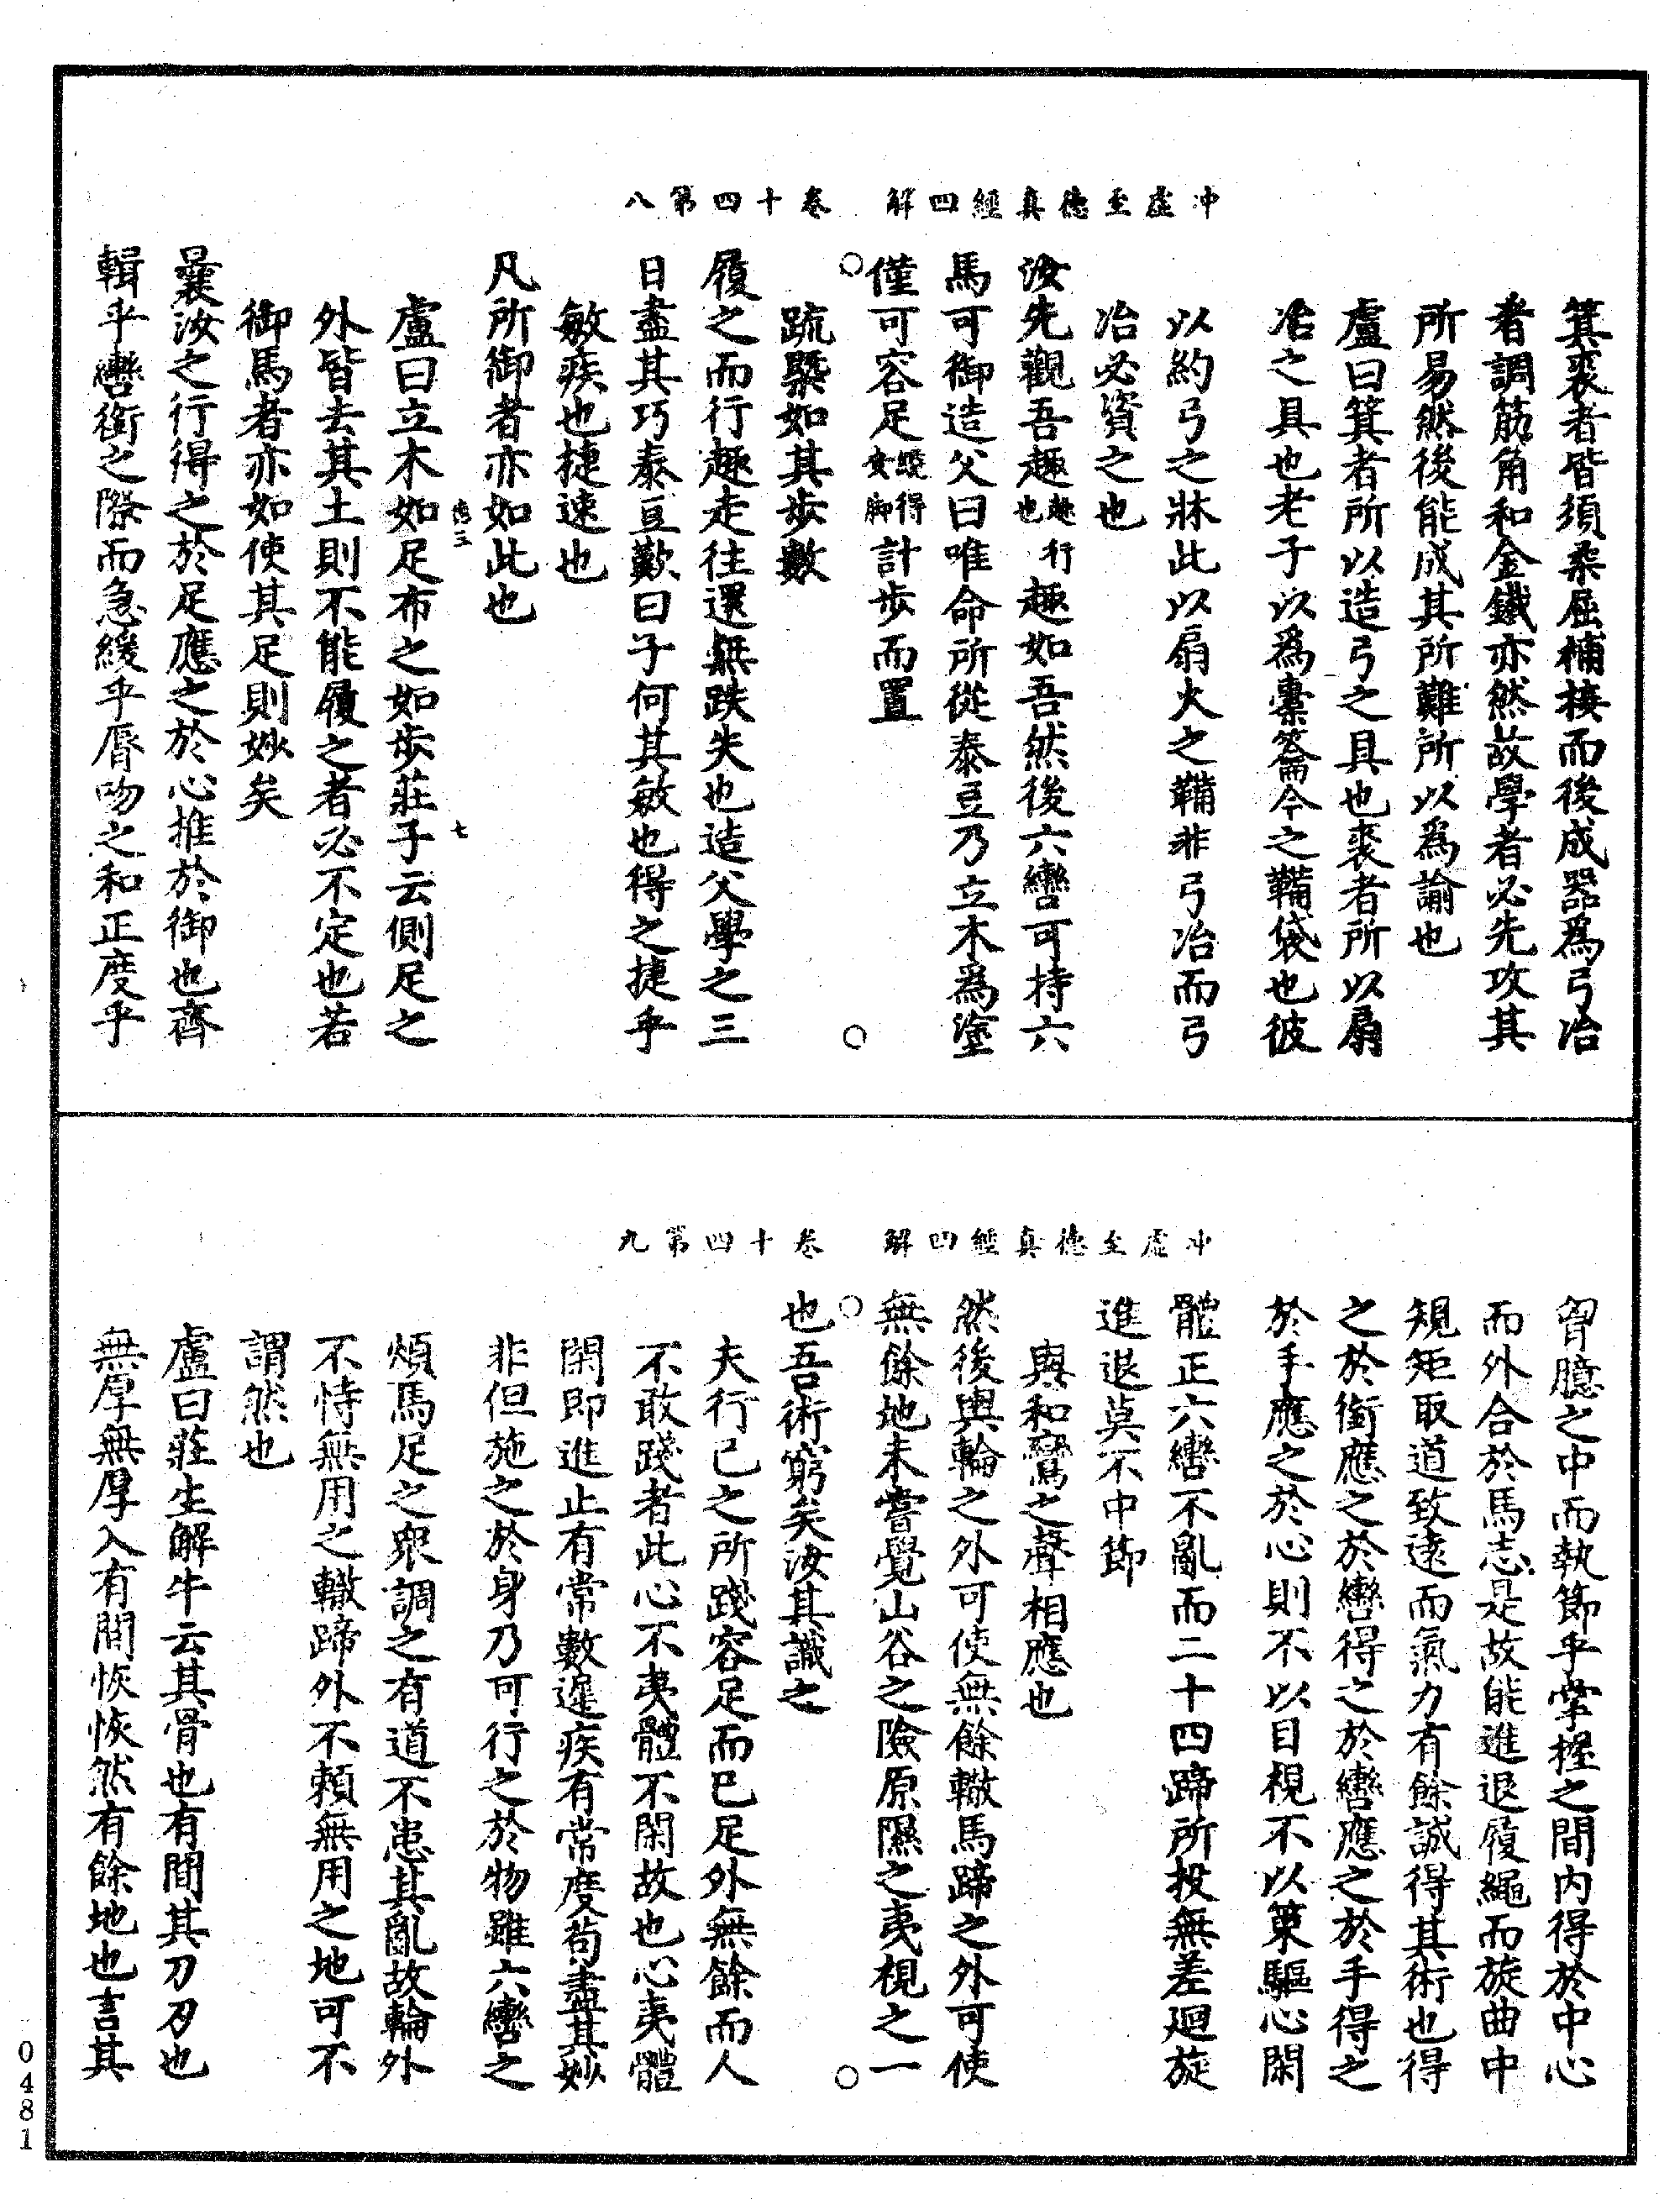 冲虛至德真經四解　卷十四第八
箕裘者皆須柔屈補接而後成器為弓冶
者調筋角和金鐵亦然故學者必先攻其
所易然後能成其所難所以為諭也
盧曰箕者所以造弓之具也裘者所以扇
冶之具也老子以為橐籥今之鞴袋也彼
以約弓之牀此以扇火之鞴非弓冶而弓
冶必資之也
汝先觀吾趣趣行也趣如吾然後六轡可持六
馬可御造父曰唯命所從泰豆乃立木為塗
僅可容足纔得安脚計步而置
疏槩如其步數
履之而行趣走往還無跌失也造父學之三
日盡其巧泰豆歎曰子何其敏也得之捷乎
敏疾也捷速也
凡所御者亦如此也
德三　七
盧曰立木如足布之如步莊子云側足之
外皆去其土則不能履之者必不定也若
御馬者亦如使其足則妙矣
曩汝之行得之於足應之於心推於御也齊
輯乎轡銜之際而急緩乎脣吻之和正度乎
冲虛至德真經四解　卷十四第九
胷臆之中而執節乎掌握之間內得於中心
而外合於馬志是故能進退履繩而旋曲中
規矩取道致遠而氣力有餘誠得其術也得
之於銜應之於轡得之於轡應之於手得之
於手應之於心則不以目視不以策驅心閑
體正六轡不亂而二十四蹄所投無差迴旋
進退莫不中節
與和鸞之聲相應也
然後輿輪之外可使無餘轍馬蹄之外可使
無餘地未嘗覺山谷之險原隰之夷視之一
也吾術窮矣汝其識之
夫行己之所踐容足而已足外無餘而人
不敢踐者此心不夷體不閑故也心夷體
閑即進止有常數遲疾有常度苟盡其妙
非但施之於身乃可行之於物雖六轡之
煩馬足之衆調之有道不患其亂故輪外
不恃無用之轍蹄外不賴無用之地可不
謂然也
盧曰莊生解牛云其骨也有間其刀刃也
無厚無厚入有間恢恢然有餘地也言其
0481